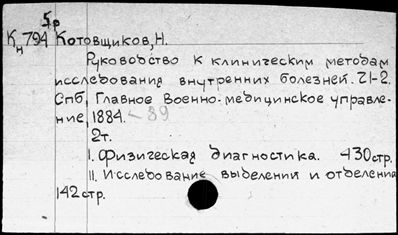 5р
Кн794 Котовщиков, Н.
Руководство к клиническим методам
исследования внутренних болезней. Ч1-2.
Спб, Главное Военно-медицинское управле-
ние, 1884. -89
2т.
I. Физическая диагностика. 430стр.
II. Исследование выделения и отделения
142стр.